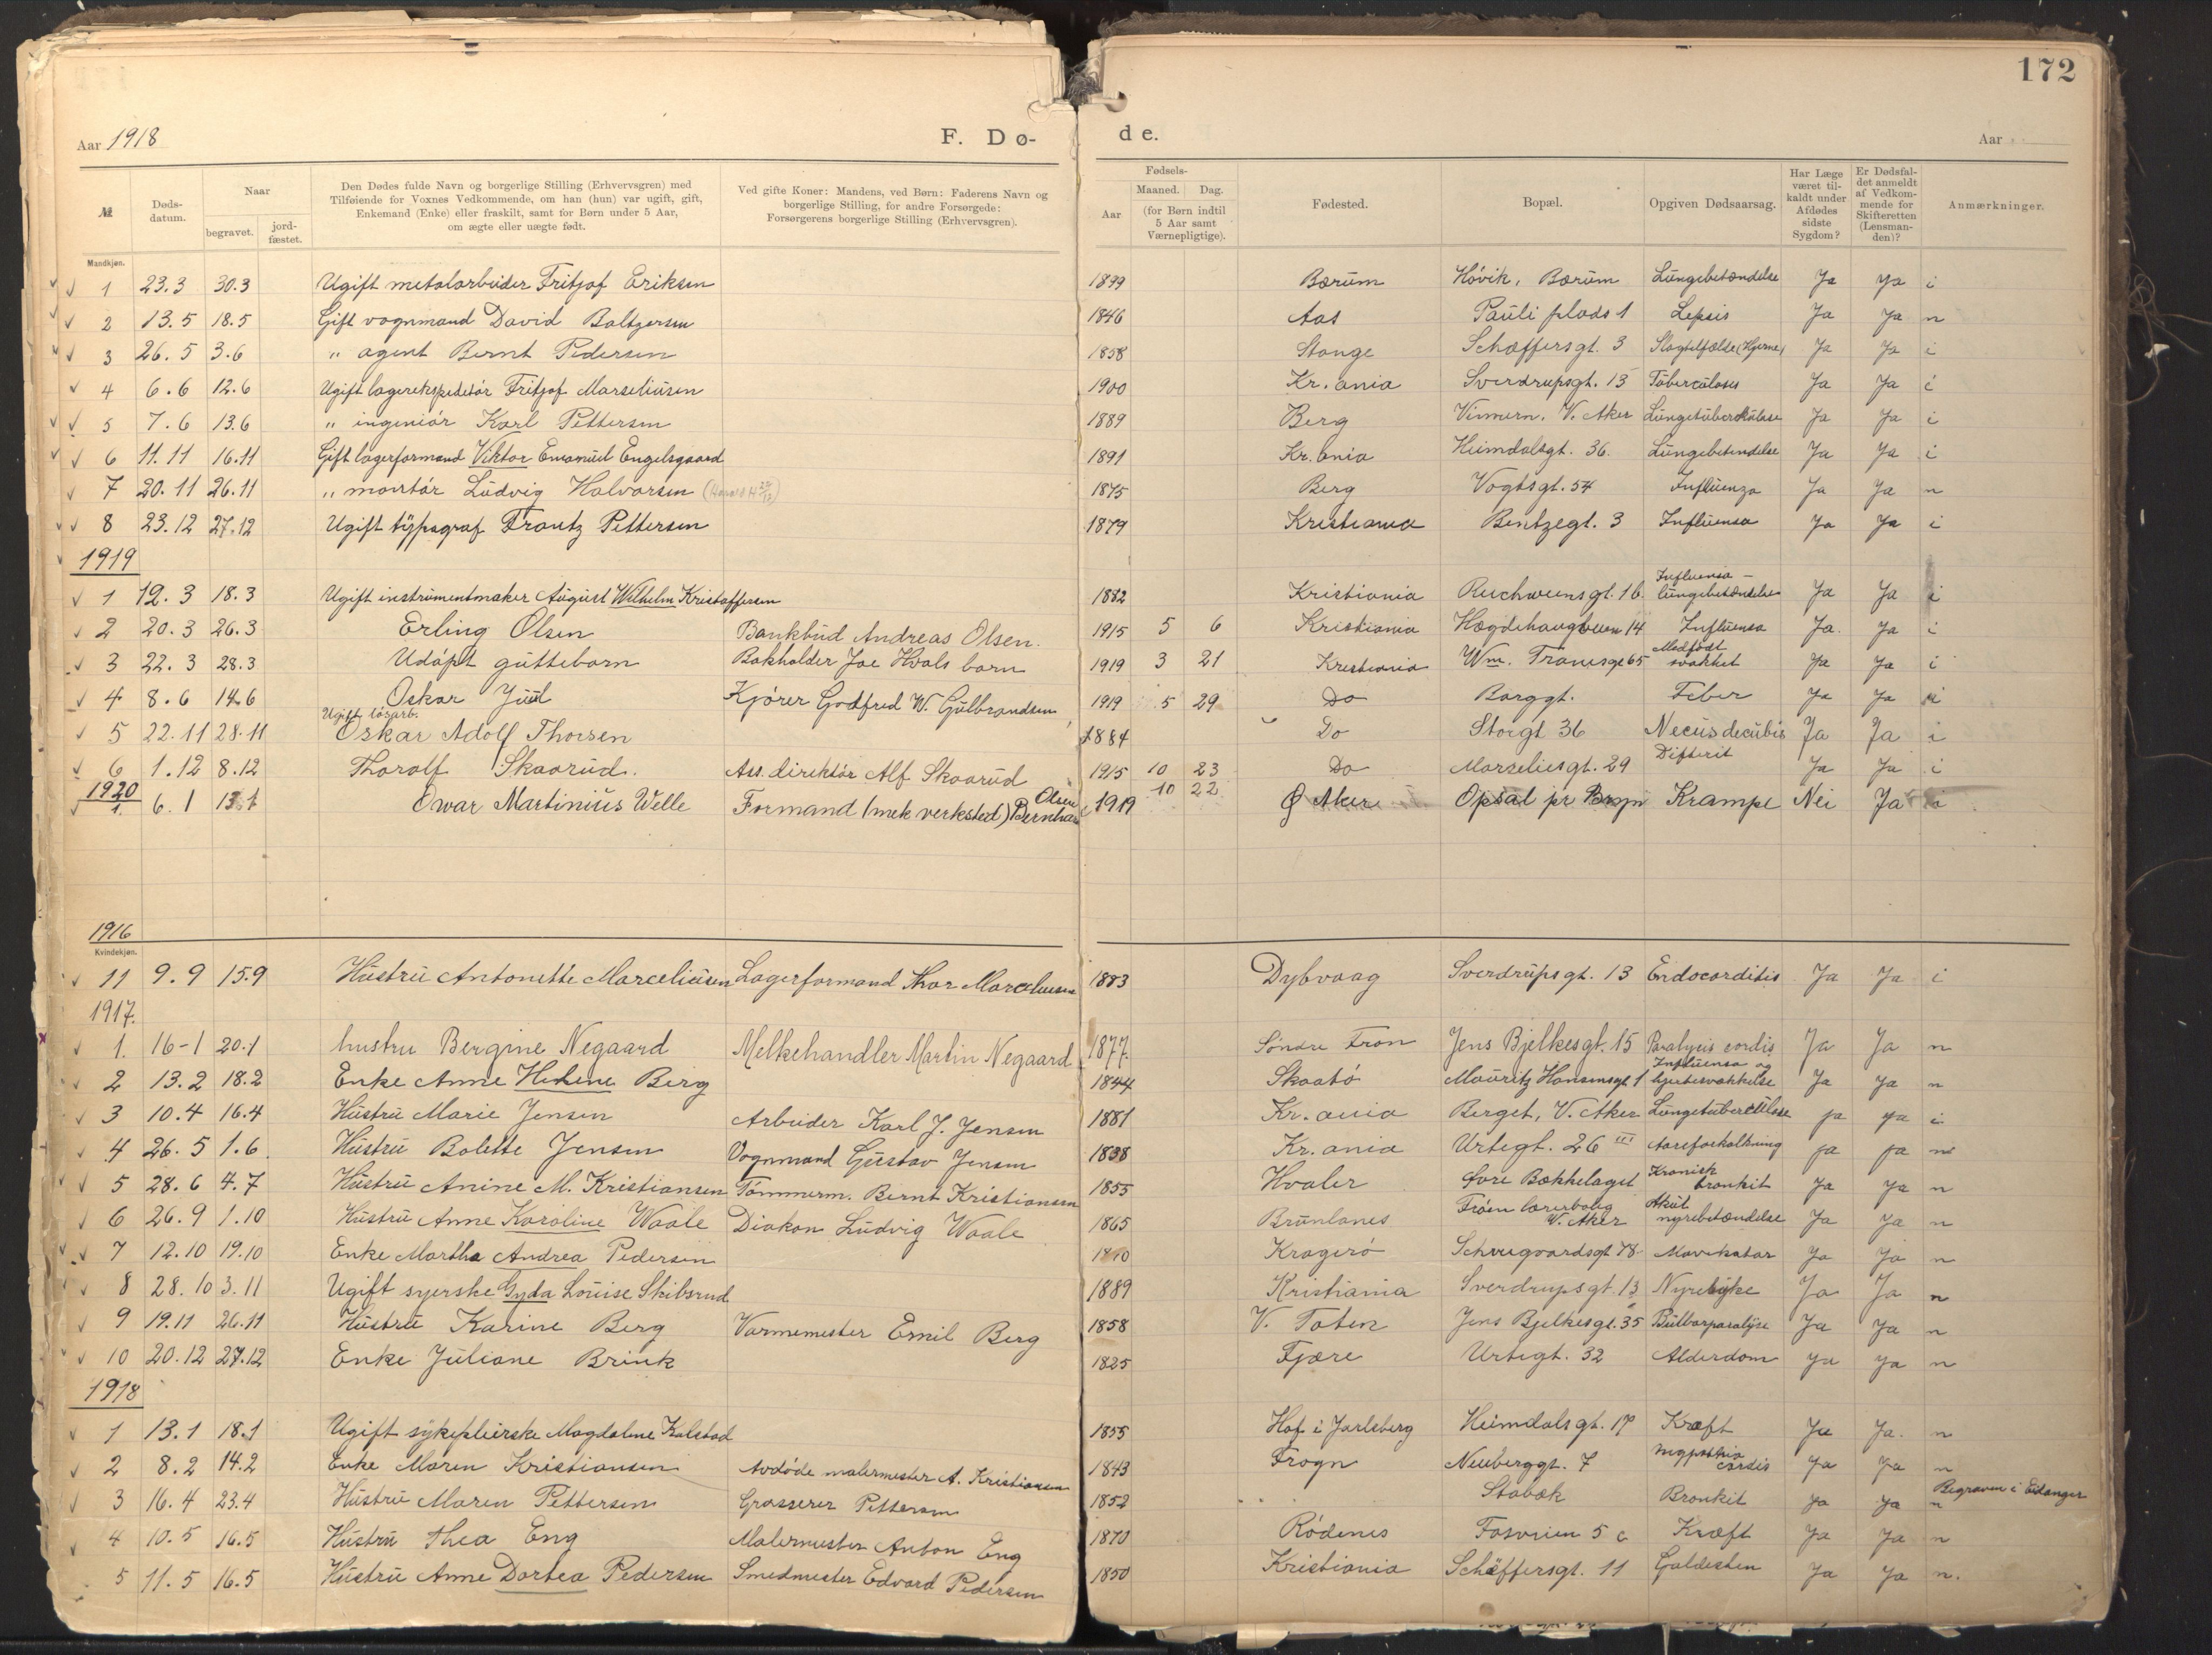 172
Aar 1918 F. Dø- de. Aar
№
Døds-datum.
Naar
begravet.
jord-fæstet.
Den Dødes fulde Navn og borgerlige Stilling (Erhvervsgren) med
Tilføiende for Voxnes Vedkommende, om han (hun) var ugift, gift,
Enkemand (Enke) eller fraskilt, samt for Børn under 5 Aar,
om ægte eller uægte født.
Ved gifte Koner: Mandens, ved Børn: Faderens Navn og
borgerlige Stilling, for andre Forsørgede:
Forsørgerens borgerlige Stilling (Erhvervsgren).
Fødsels-
Aar
Maaned. Dag.
(for Børn indtil
5 Aar samt
Værnepligtige).
Fødested.
Bopæl.
Opgiven Dødsaarsag.
Har Læge
været til-
kaldt under
Afdødes
sidste
Sygdom?
Er Dødsfal-
det anmeldt
af Vedkom-
mende for
Skifteretten
(Lensman-
den)?
Anmærkninger.
Mandkjøn.
1 23.3 30.3 Ugift metalarbeider Fritjof Eriksen 1899 Bærum Høvik, Bærum Lungebetændelse Ja Ja i
2 13.5 18.5 Gift vognmand David Baltzersen 1846 Aas Pauli plads 1 Lepsis Ja Ja n
3 26.5 3.6 " agent Bernt Pedersen 1858 Stange Schæffersgt. 3 (Hjerne) Ja Ja i
4 6.6 12.6 Ugift lagerekspeditør Fritjof Marseliusen 1900 Kr.ania Sverdrupsgt. 13 Tuberculoses Ja Ja i
5 7.6 13.6 " ingeniør Karl Pettersen 1889 Berg Vimmern, V. Aker Lungetuberkulose Ja Ja i
6 11.11 16.11 Gift lagerformand Viktor Emanuel Engelsgaard 1891 Kr.ania Heimdalsgt. 36. Lungebetændelse Ja Ja i
7 20.11 26.11 " montør Ludvig Halvorsen 1875 Berg Vogtsgt. 54 Influenza Ja Ja n
8 23.12 27.12 Ugift typograf Frantz Pettersen 1879 Kristiania Bentzegt. 3 Influensa Ja Ja i
1919
1 12.3 18.3 Ugift instrumentmaker August Wilhelm Kristoffersen 1882 Kristiania Ruchwensgt. 16 Influensa – lungebetændelse Ja Ja i
2 20.3 26.3 Erling Olsen Bankbud Andreas Olsen. 1915 5 6 Kristiania Hægdehaugveien 14 Influensa Ja. Ja i
3 22.3 28.3 Udøpt guttebarn Bokholder Joe Hvals barn 1919 3 21 Kristiania Wm. Tranesgt 65 Medfødt svakhet Ja Ja i
4 8.6 14.6 Oskar Juul Kjører Godfred W. Gulbrandsen 1919 5 29 Do Borggt. Feber Ja Ja
5 22.11 28.11 Ugift løsarb. Oskar Adolf Thorsen 1884 Do Storgt 36 Necus decubis Ja Ja i
6 1.12 8.12 Thoralf Skaarud. Ass. direktør Alf Skaarud 1915 10 23 Do Marseliesgt. 29 Difterit Ja Ja i
1920
1. 6.1 Owar Martinius Welle Formand (mek verksted) Bernhard Olsen 1919 10 22 Ø Aker Opsal pr Bryn Krampe Nei Ja i
1916
Kvindekjøn.
11 9.9 15.9 Hustru Antonette Marceliusen Lagerformand Thor Marceliusen 1883 Dybvaag Sverdrupsgt. 13 Endocorditis Ja Ja i
1917.
1. 16-1 20.1 hustru Bergine Negaard Melkehandler Martin Negaard 1877. Søndre Fron Jens Bjelkesgt. 15 Paralysis cordis Ja Ja n
2 13.2 18.2 Enke Anne Helene Berg 1844 Skaatø Mauritz Hansensgt 1 Influensa og hjertesvækkelse Ja Ja n
3 10.4 16.4 Hustru Marie Jensen Arbeider Karl J. Jensen 1881 Kr.ania Berget, V. Aker Lungetuberculose Ja Ja i
4 26.5 1.6 Hustru Bolette Jensen Vognmand Gustav Jensen 1838 Kr.ania Urtegt. 26 III Aareforkalkning Ja Ja n
5 28.6 4.7 Hustru Anine M. Kristiansen Tømmerm. Bernt Kristiansen 1855 Hvaler Øvre Bækkelaget Kronisk bronkit Ja Ja n
6 26.9 1.10 Hustru Anne Karoline Waale Diakon Ludvig Waale 1865 Brunlanes Frøen lærerbolig V. Aker Akut nyrebetændelse Ja Ja n
7 12.10 19.10 Enke Martha Andrea Pedersen 1840 Kragerø Schweigaardsgt 78 Mavekatar Ja Ja n
8 28.10 3.11 Ugift syerske Gyda Louise Skibsrud 1889 Kristiania Sverdrupsgt. 13 Nyresyke Ja Ja n
9 19.11 26.11 Hustru Karine Berg Varmemester Emil Berg 1858 V. Toten Jens Bjelkesgt. 35 Bulbærparalyse Ja Ja n
10 20.12 27.12 Enke Juliane Brink 1825 Fjære Urtegt. 32 Alderdom Ja Ja n
1918
1 13.1 18.1 Ugift sykepleierske Magdalene Kalstad 1855 Hof i Jarlsberg Heimdalsgt. 17 Kræft Ja Ja. n
2 8.2 14.2 Enke Maren Kristiansen Avdøde malermester A. Kristiansen 1843 Frogn Neuberggt. 7 cordis Ja Ja n
3 16.4 23.4 Hustru Maren Pettersen Grosserer Pettersen 1852 Stabæk Bronkit Ja Ja n Begraven i Eidanger
4 10.5 16.5 Hustru Thea Eng Malermester Anton Eng 1870 Rødenes Fosveien 5 c Kræft Ja Ja n
5 11.5 16.5 Hustru Anne Dortea Pedersen Smedmester Edvard Pedersen 1850 Kristiania Schäffersgt. 11 Galdesten Ja Ja n.